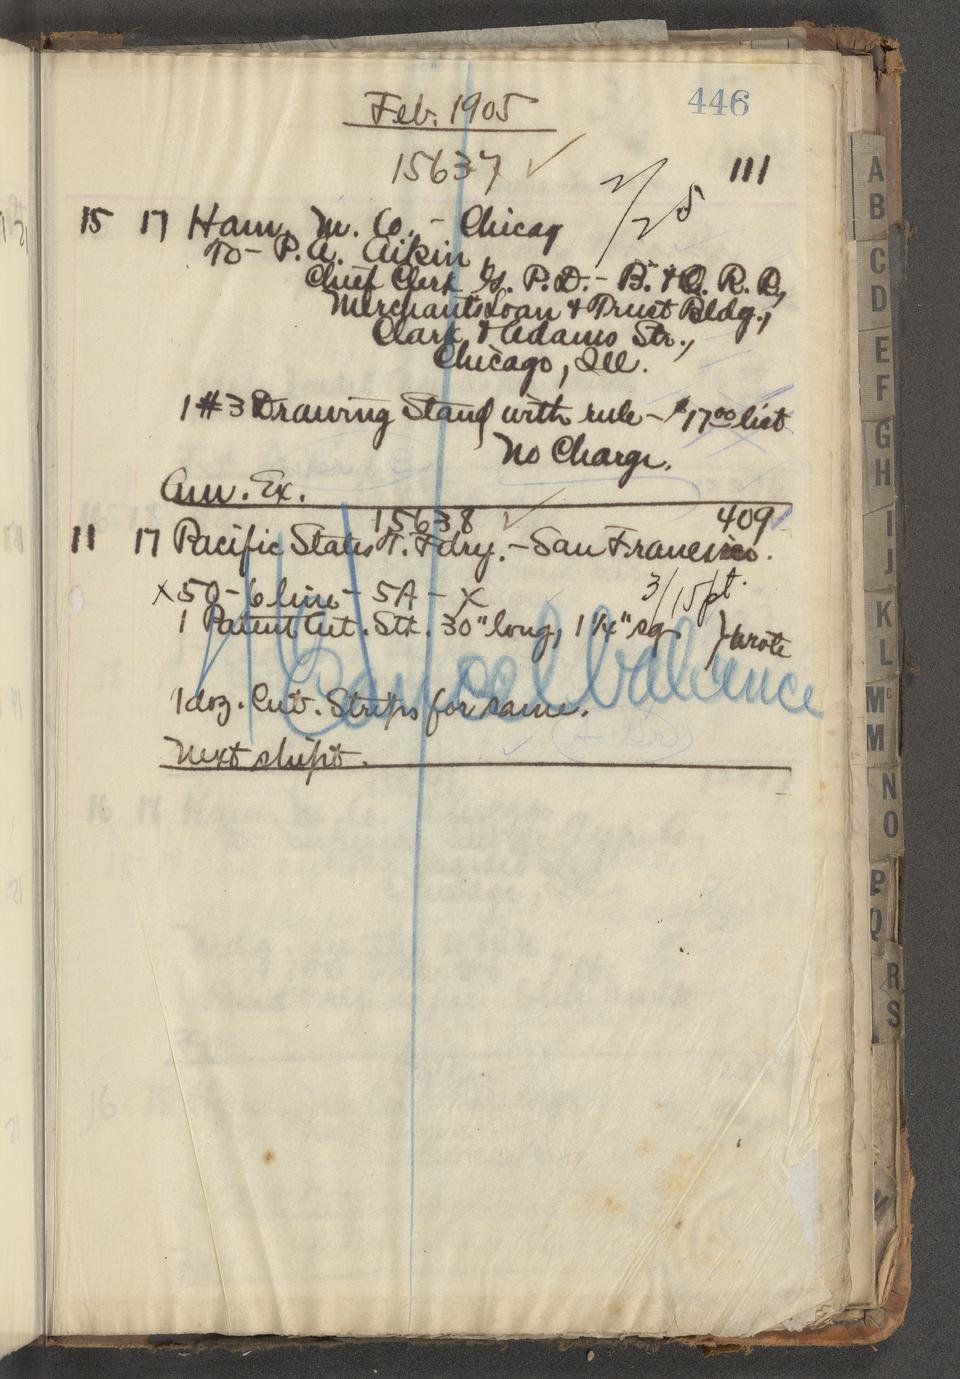 446
Feb. 1905
15637 ✓
111
2/25
15 17 Ham. M. Co. - Chicag
To - P.A. Aikin
Chief Clerk G. P. D. - B. & O. R. R.,
Merchants Loan & Trust Bldg.,
Clark & Adams Str.,
Chicago, Ill.
1 #3 Drawing Stand with rule - $17.00 list
No Charge.
Am. Ex.
15638 ✓ 409
11 17 Pacific States T. Fdry. - San Francisco.
X 50 - 6 line - 5A - X 3/15 pt.
1 Patent Cut. Stk. 30" long, 1 1/4" sq. } wrote
Cancel balance
1 doz. Cut. Strips for same.
Next shipt.
A
B
C
D
E
F
G
H
I
J
K
L
Mc
M
N
O
P
Q
R
S